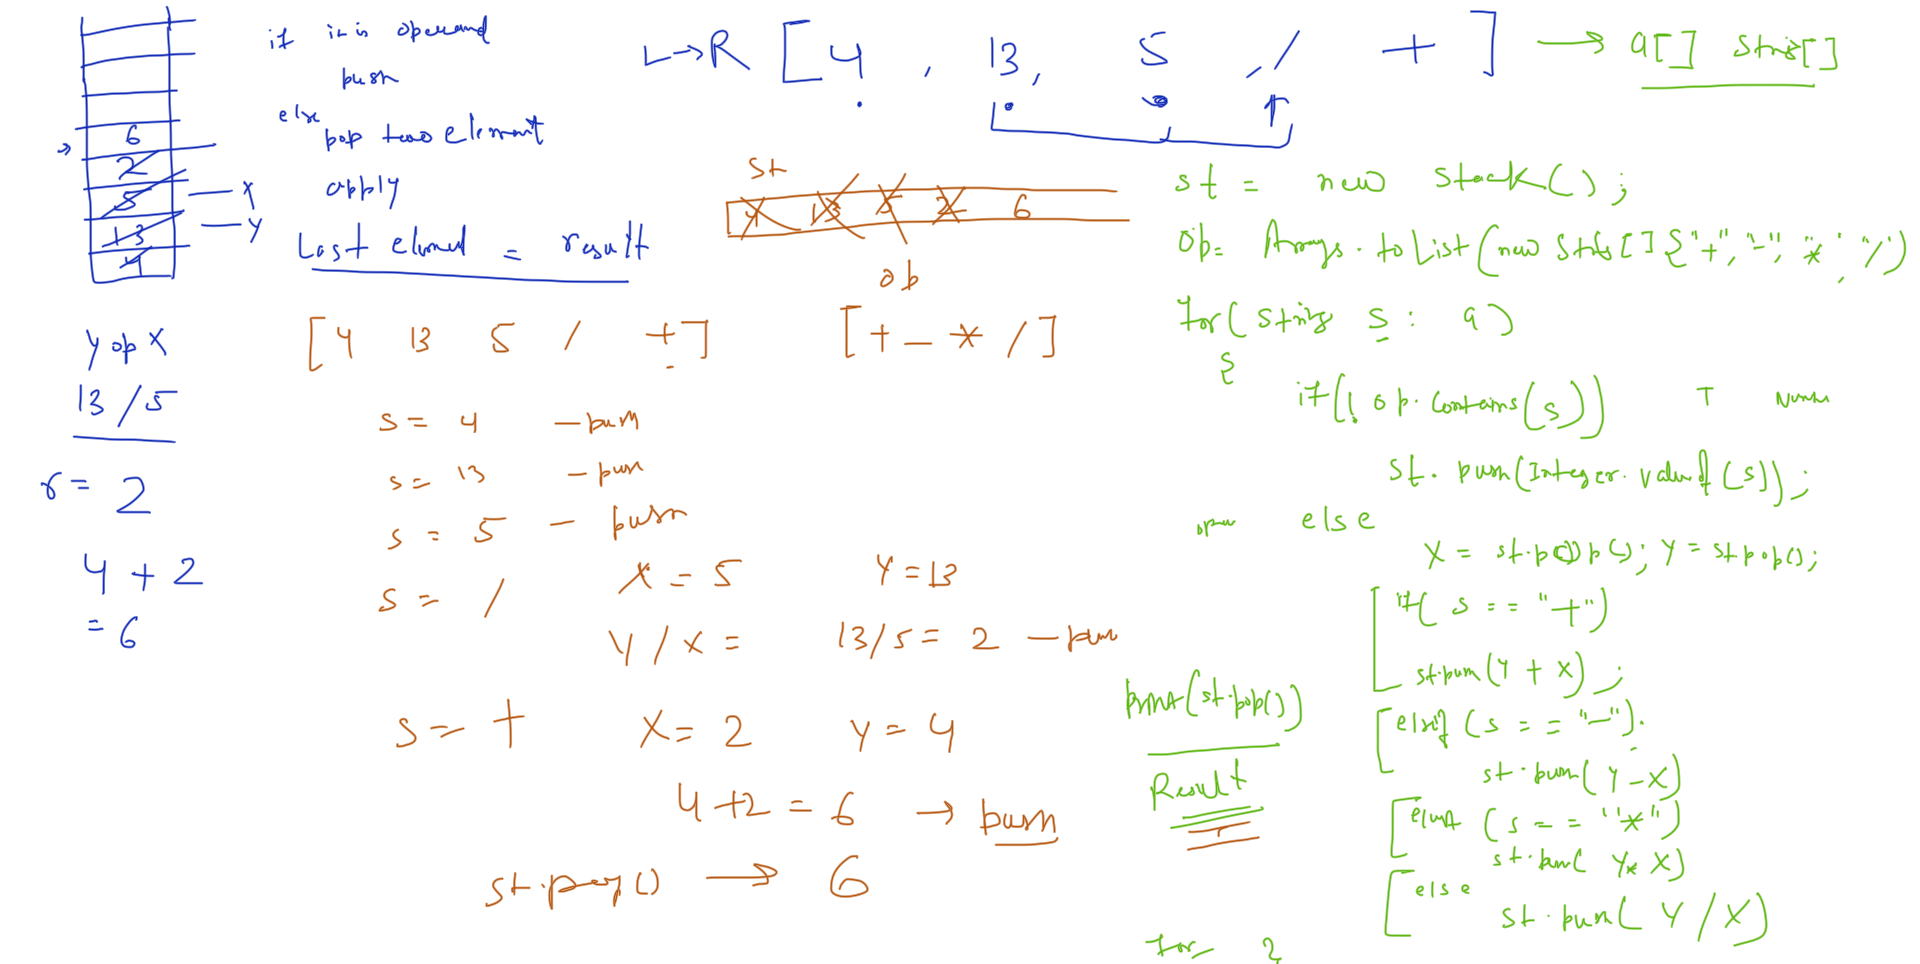 if it is operand
push
else
pop two element
apply
Last elemed = result
6
2
5
13
4
X
Y
Y op X
13 / 5
r = 2
4 + 2
= 6
L→R [ 4 , 13, 5 , / + ] → a[] String[]
St
4 13 5 2 6
op
[ 4 13 5 / + ] [ + - * / ]
s = 4 - push
s = 13 - push
s = 5 - push
s = / X = 5 Y = 13
Y / X = 13/5 = 2 - push
s = + X = 2 Y = 4
4 + 2 = 6 → push
st.pop() → 6
st = new Stack();
Op = Arrays.toList(new String[]{"+", "-", "*", "/")
for(String s : a)
{
if(! op.contains(s)) T
st.push(Integer.valueOf(s));
else
X = st.pop(); Y = st pop();
if( s == "+")
st.push(Y + X) ;
elseif (s == "-").
st.push( Y - X)
elseif (s == "*")
st.push( Y * X)
else
st.push( Y / X)
print(st.pop())
Result
for